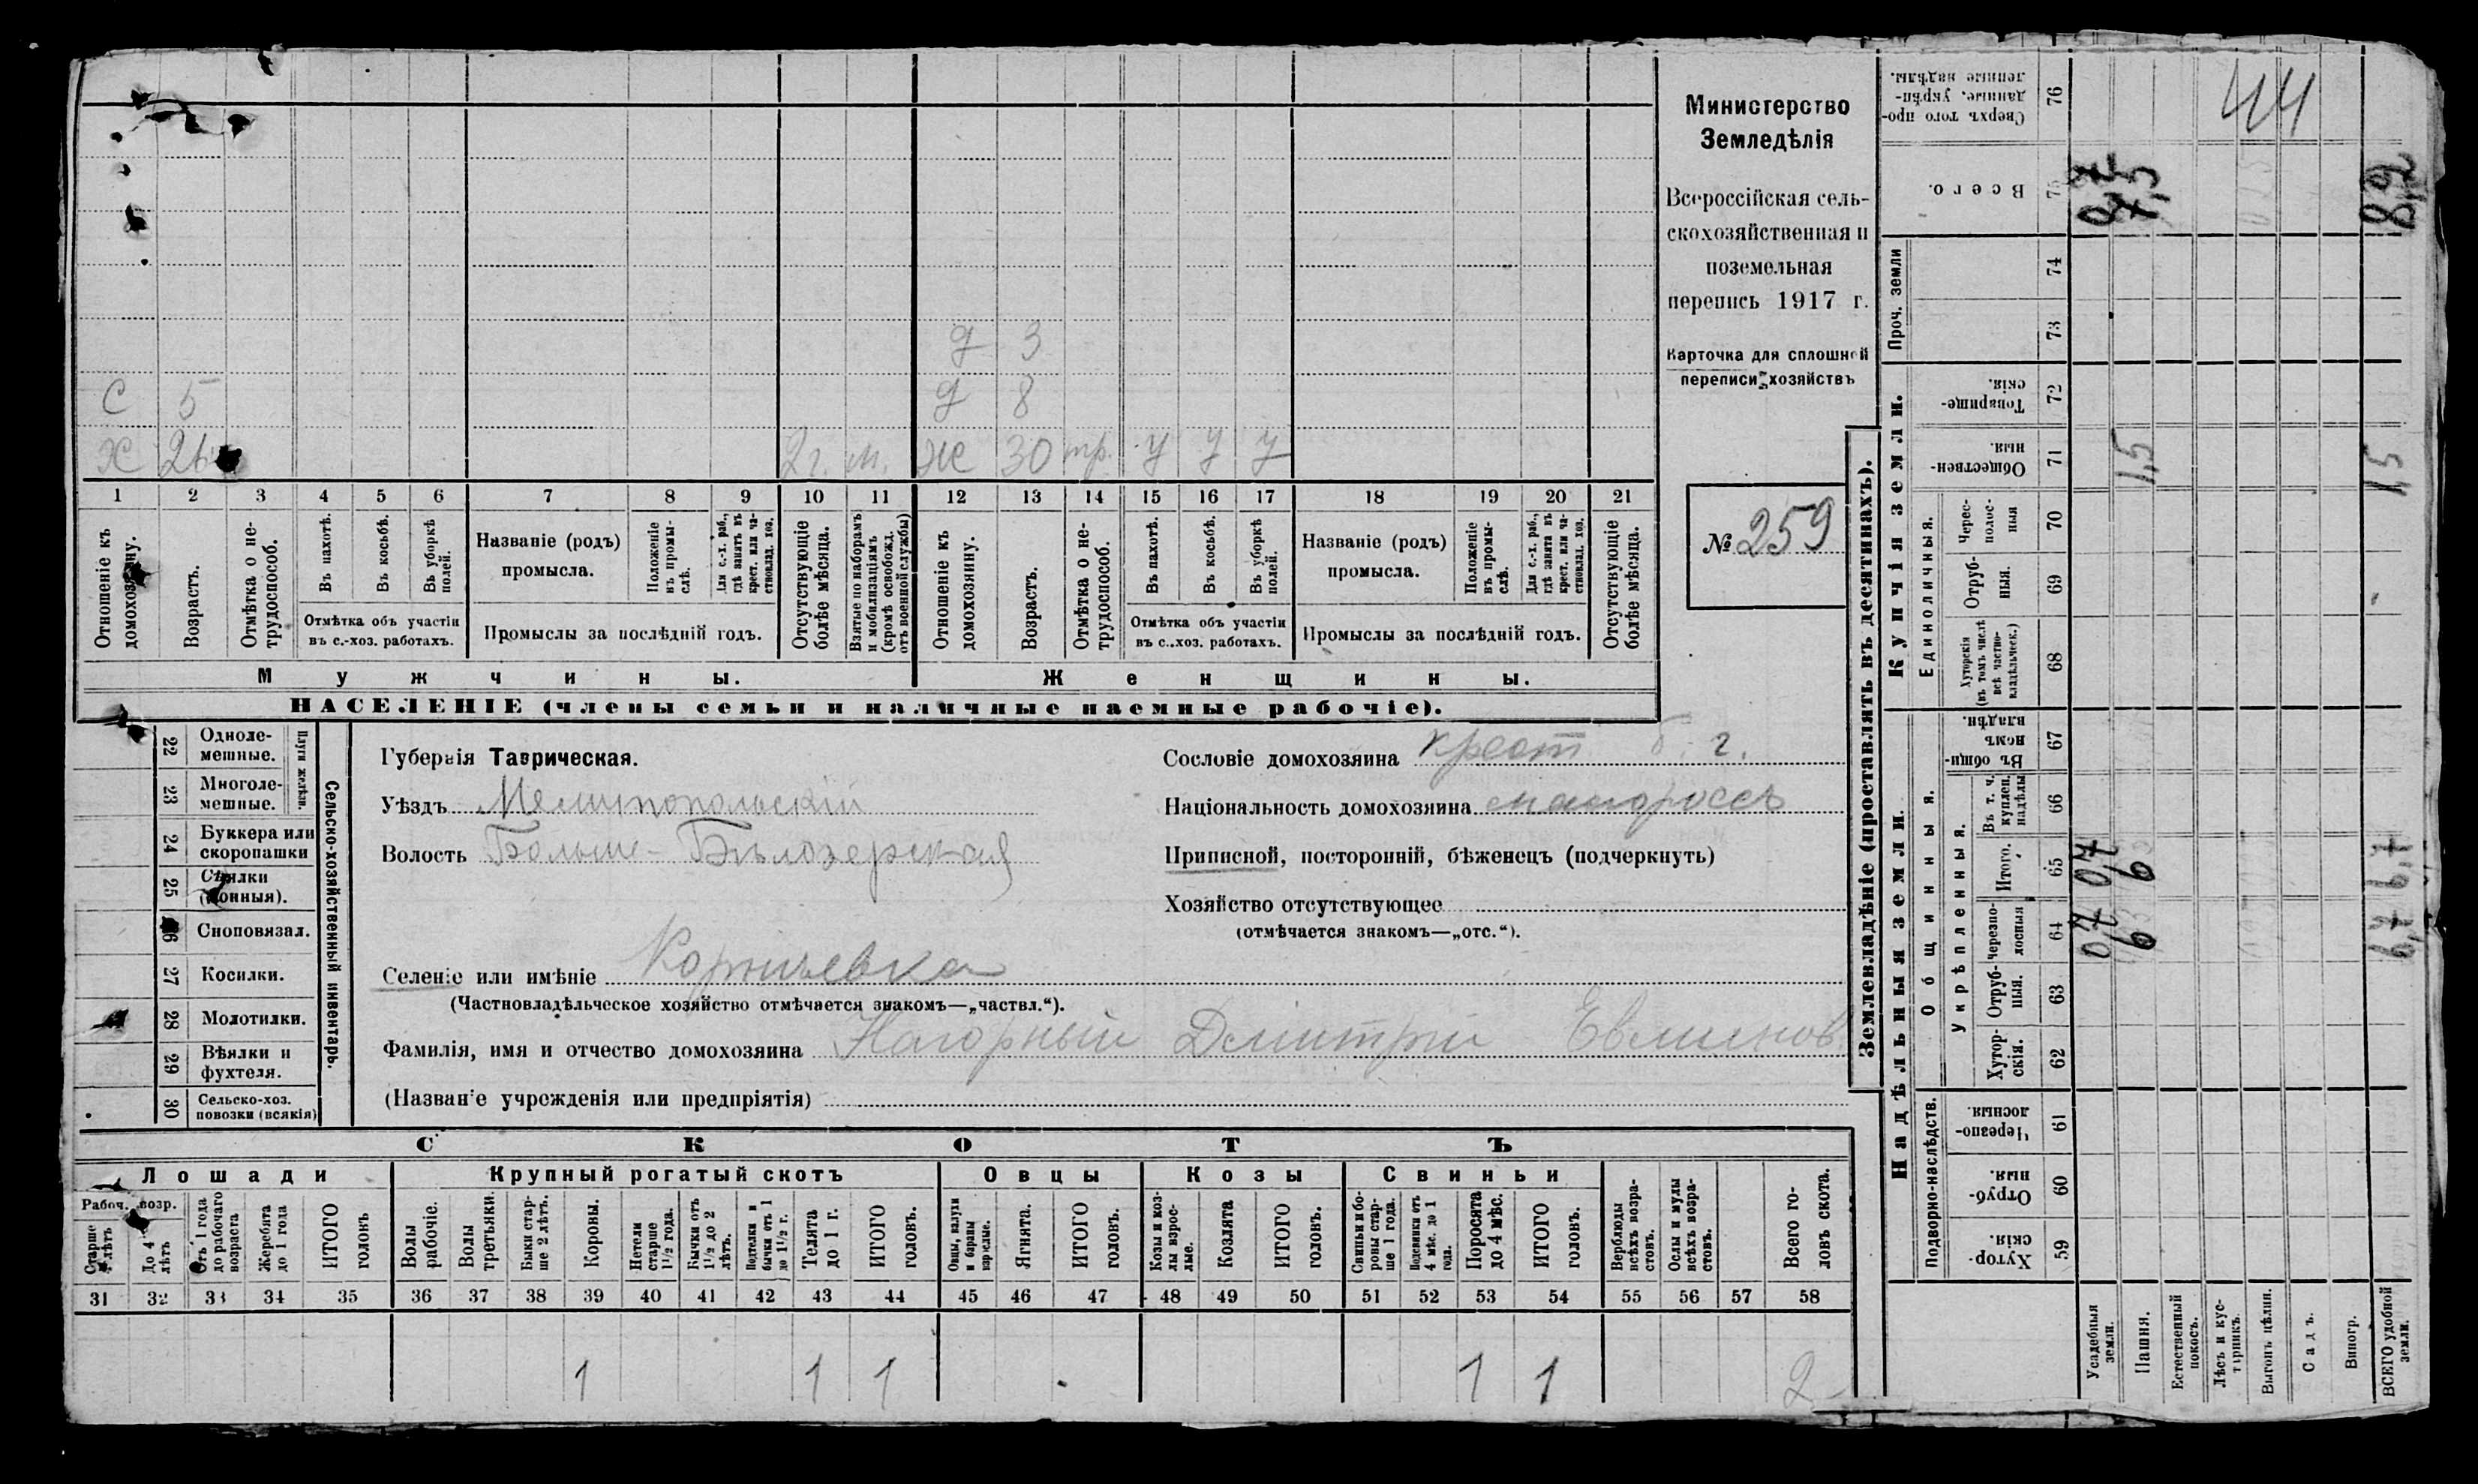 Министерство
Земледѣлія
Всероссійская сель-
скохозяйственная и
поземельная
перепись 1917 г.
Карточка для сплошной
переписи хозяйствъ
№ 259
д 3
С 5 д 8
Х 26 2 г. м. Ж 30 тр. у у у
1 2 3 4 5 6 7 8 9 10 11 12 13 14 15 16 17 18 19 20 21
Отношеніе къ домохозяину.
Возрастъ.
Отмѣтка о не-трудоспособ.
Въ пахотѣ.
Въ косьбѣ.
Въ уборкѣ полей.
Отмѣтка объ участіи въ с.-хоз. работахъ.
Названіе (родъ) промысла.
Положеніе въ промы-слѣ.
Для с.-х. раб., гдѣ занятъ въ крест. или ча-стновлад. хоз.
Промыслы за послѣдній годъ.
Отсутствующіе болѣе мѣсяца.
Взятые по наборамъ и мобилизаціямъ (кромѣ освобожд. отъ военной службы)
Отношеніе къ домохозяину.
Возрастъ.
Отмѣтка о не-трудоспособ.
Въ пахотѣ.
Въ косьбѣ.
Въ уборкѣ полей.
Отмѣтка объ участіи въ с..хоз. работахъ.
Названіе (родъ) промысла.
Положеніе въ промы-слѣ.
Для с.-х. раб., гдѣ занята въ крест. или ча-стновлад. хоз.
Промыслы за послѣдній годъ.
Отсутствующіе болѣе мѣсяца.
Мужчины.
Женщины.
НАСЕЛЕНІЕ (члены семьи и наличные наемные рабочіе).
Сельско-хозяйственный инвентарь.
Плуги желѣзн.
22 Одноле-мешные.
23 Многоле-мешные.
24 Буккера или скоропашки
25 Сѣялки (конныя).
26 Сноповязал.
27 Косилки.
28 Молотилки.
29 Вѣялки и фухтеля.
30 Сельско-хоз. повозки (всякія)
Губернія Таврическая.
Уѣздъ Мелитопольскій
Волость Больше-Бѣлозерская
Селеніе или имѣніе
(Частновладѣльческое хозяйство отмѣчается знакомъ—„частвл.“).
Фамилія, имя и отчество домохозяина Нагорный Дмитрий
(Названіе учрежденія или предпріятія)
Сословіе домохозяина крест. г.
Національность домохозяина малороссъ
Приписной, посторонній, бѣженецъ (подчеркнуть)
Хозяйство отсутствующее
(отмѣчается знакомъ—„отс.“).
СКОТЪ
Лошади Крупный рогатый скотъ Овцы Козы Свиньи
Рабоч. возр.
Старше 4 лѣтъ
До 4 лѣтъ
Отъ 1 года до рабочаго возраста
Жеребята до 1 года
ИТОГО головъ
Волы рабочіе.
Волы третьяки.
Быки стар-ше 2 лѣтъ.
Коровы.
Нетели старше 1½ года.
Бычки отъ 1½ до 2 лѣтъ.
Подтелки и бычки отъ 1 до 1½ г.
Телята до 1 г.
ИТОГО головъ.
Овцы, валухи и бараны взрослые.
Ягнята.
ИТОГО головъ.
Козы и коз-лы взрос-лые.
Козлята
ИТОГО головъ.
Свиньи и бо-ровы стар-ше 1 года.
Подсвинки отъ 4 мѣс. до 1 года.
Поросята до 4 мѣс.
ИТОГО головъ.
Верблюды всѣхъ возра-стовъ.
Ослы и мулы всѣхъ возра-стовъ.
Всего го-ловъ скота.
31 32 33 34 35 36 37 38 39 40 41 42 43 44 45 46 47 48 49 50 51 52 53 54 55 56 57 58
1 1 1 1 1 2
Землевладѣніе (проставлять въ десятинахъ).
Надѣльныя земли.
Купчія земли.
Проч. земли
Подворно-наслѣдств.
Общинныя.
Укрѣпленныя.
Единоличныя.
Сверхъ того про-данные, укрѣп-ленные надѣлы. 76
Всего. 75
74
73
Товарище-скія. 72
Обществен-ныя. 71
Черес-полос-ныя 70
Отруб-ныя. 69
Хуторскія (въ томъ числѣ всѣ частно-владѣльческ.) 68
Въ общин-номъ владѣн. 67
Въ т. ч. куплен. надѣлы 66
Итого. 65
Черезпо-лосныя 64
Отруб-ныя. 63
Хутор-скія. 62
Черезпо-лосныя. 61
Отруб-ныя. 60
Хутор-скія. 59
44
0,7 7,5 8,2
1,5 1,5
0,7 6 6,7
0,7 6 6,7
Усадебныя земли.
Пашня.
Естественный покосъ.
Лѣсъ и кус-тарникъ.
Выгонъ цѣлин.
Садъ.
Виногр.
ВСЕГО удобной земли.